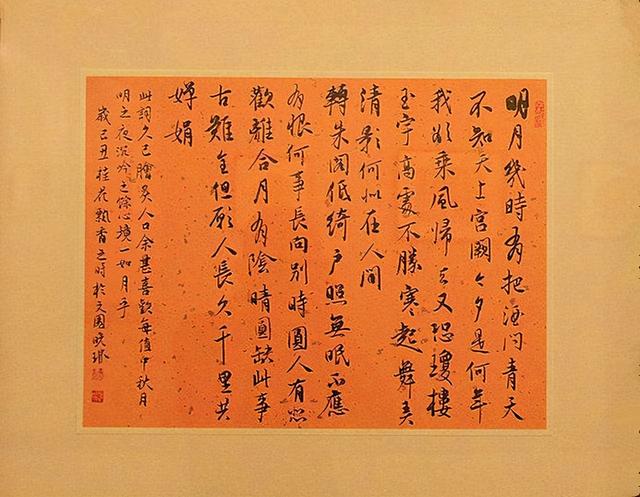 明月幾時有把酒問青天
不知天上宮闕今夕是何年
我欲乘風歸去又恐瓊樓
玉宇高處不勝寒起舞弄
清影何似在人間
轉朱閣低綺戶照無眠不應
有恨何事長向別時圓人有悲
歡離合月有陰晴圓缺此事
古難全但願人長久千里共
嬋娟
此詞久已膾炙人口余甚喜歡每值中秋月
明之夜沉吟之餘心境一如月乎
歲己丑桂花飄香之時於文園